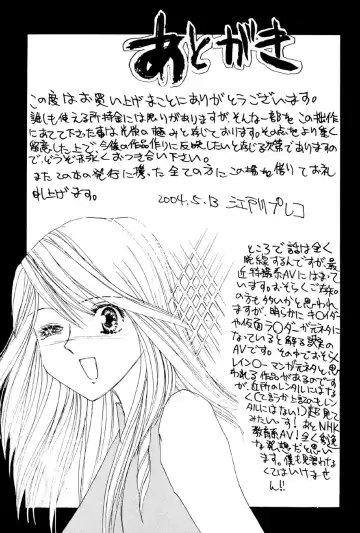 あとがき
この度はお買い上げまことにありがとうございます。
誰しも使える所持金には限りがありますが、そんな一部をこの拙作
にあてて下さった事は光栄の極みと存じております。その点をより重く
留意した上で、今後の作品作りに反映したいと存じる次第でありますの
で、どうぞ末永くおつき合い下さい。
またこの本の発行に携った全ての方にこの場を借りてお礼
申し上げます。
2004.5.13 江戸川プレコ
ところで話は全く
脱線するんですが最
近特撮系AVにはまって
います。おそらくご存知
の方も多いかと思われ
ますが、明らかにキ○イダー
や仮面ラ○ダーが元ネタに
なっていると解る訳の
AVです。その中でおそらく
レインローマンが元ネタと思
われる作品があるのです
が、近所のレンタルにはな
く(て言うか上記のもレン
タルにはない!)超見て
みたいっす!あとNHK
教育系AV!全く斬新
な発想だと思い
ます。僕も見習わな
くてはいけませ
ん!!